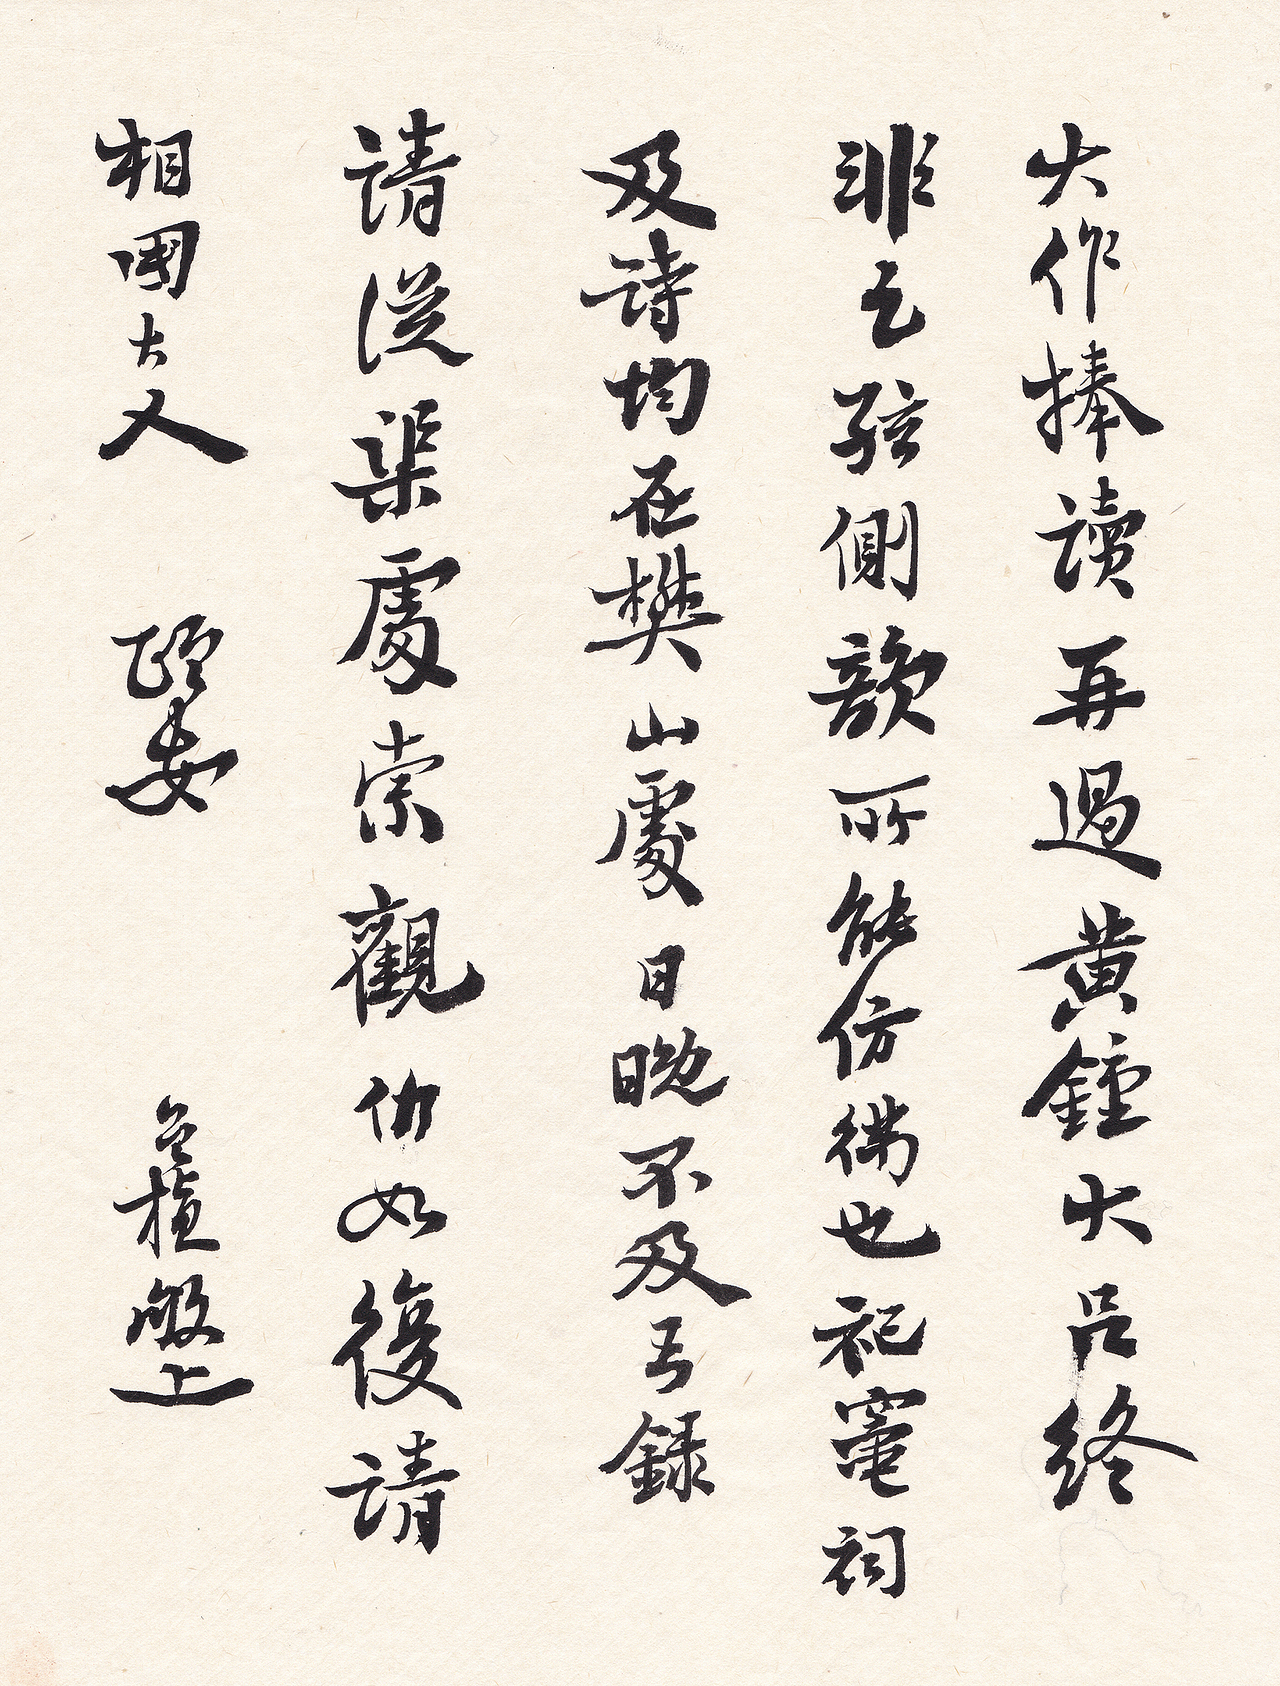 大作捧讀再過黃鐘大呂終
非么弦側韻所能仿彿也祀竈詞
及詩均在樊山處日晚不及另錄
請從渠處索觀仍如復請
相國大人 頤安 名權敬上